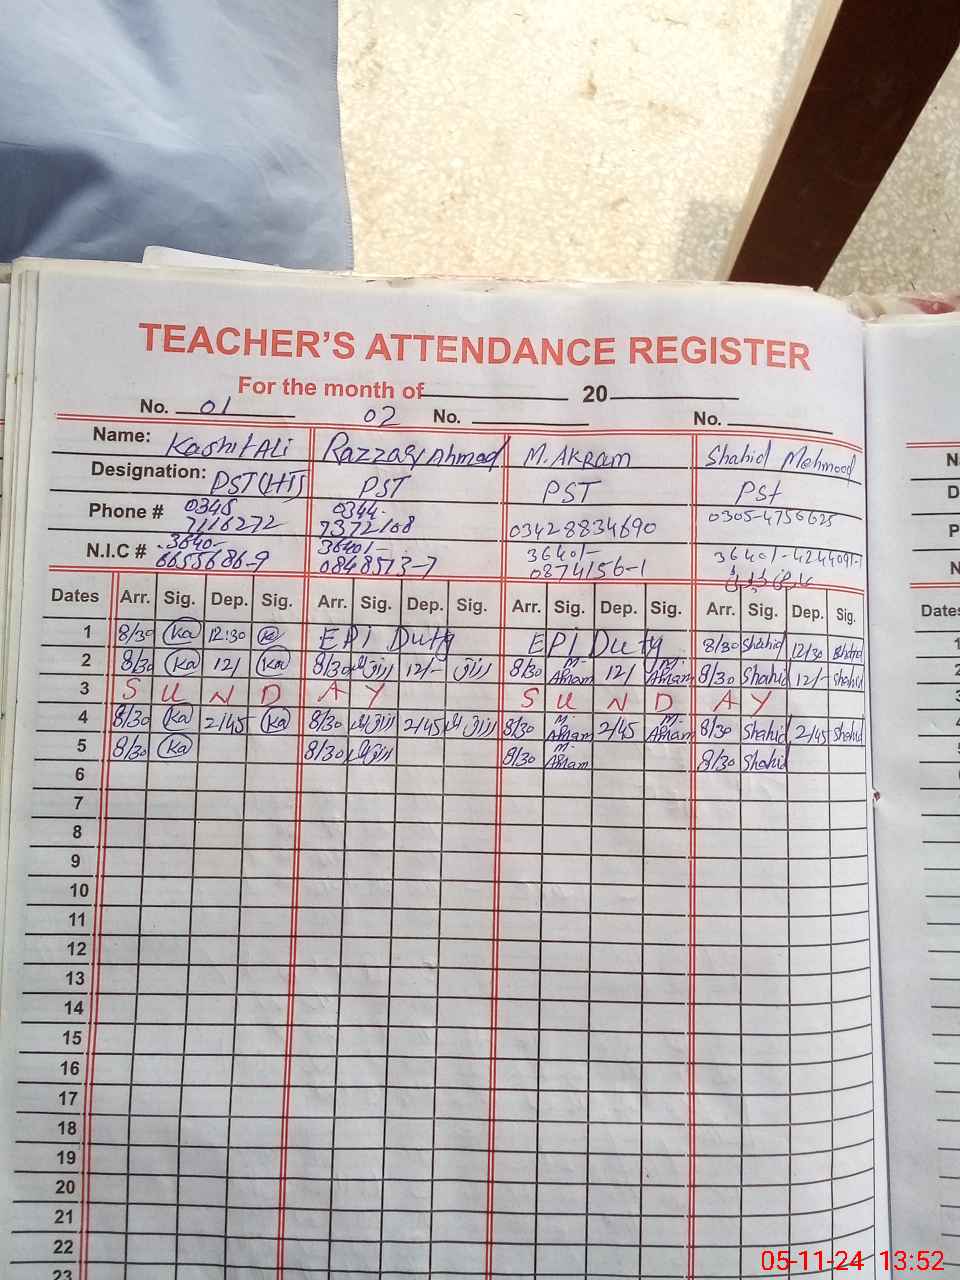 TEACHER'S ATTENDANCE REGISTER
For the month of 20
No. 01 02 No. No.
Name: Kashif Ali Razzaq Ahmad M. Akram Shahid Mehmood
Designation: PST(HT) PST PST PSt
Phone # 0345 0344-
7116272 7372108 03428834690 0305-4756625
N.I.C # 36401- 36401- 36401- 36401-4244091-1
6655686-9 0848513-7 0874156-1
Dates Arr. Sig. Dep. Sig. Arr. Sig. Dep. Sig. Arr. Sig. Dep. Sig. Arr. Sig. Dep. Sig.
1 8/30 Ka 12:30 Ka EPI Duty EPI Duty 8/30 Shahid 12/30 Shahid
2 8/30 Ka 12/ Ka 8/30 رزاق 12/- رزاق 8/30 M. Akram 12/ M. Akram 8/30 Shahid 12/- Shahid
3 S U N D A Y S U N D A Y
4 8/30 Ka 2/45 Ka 8/30 رزاق 2/45 رزاق 8/30 M. Akram 2/45 M. Akram 8/30 Shahid 2/45 Shahid
5 8/30 Ka 8/30 رزاق 8/30 M. Akram 8/30 Shahid
6
7
8
9
10
11
12
13
14
15
16
17
18
19
20
21
22
23
05-11-24 13:52